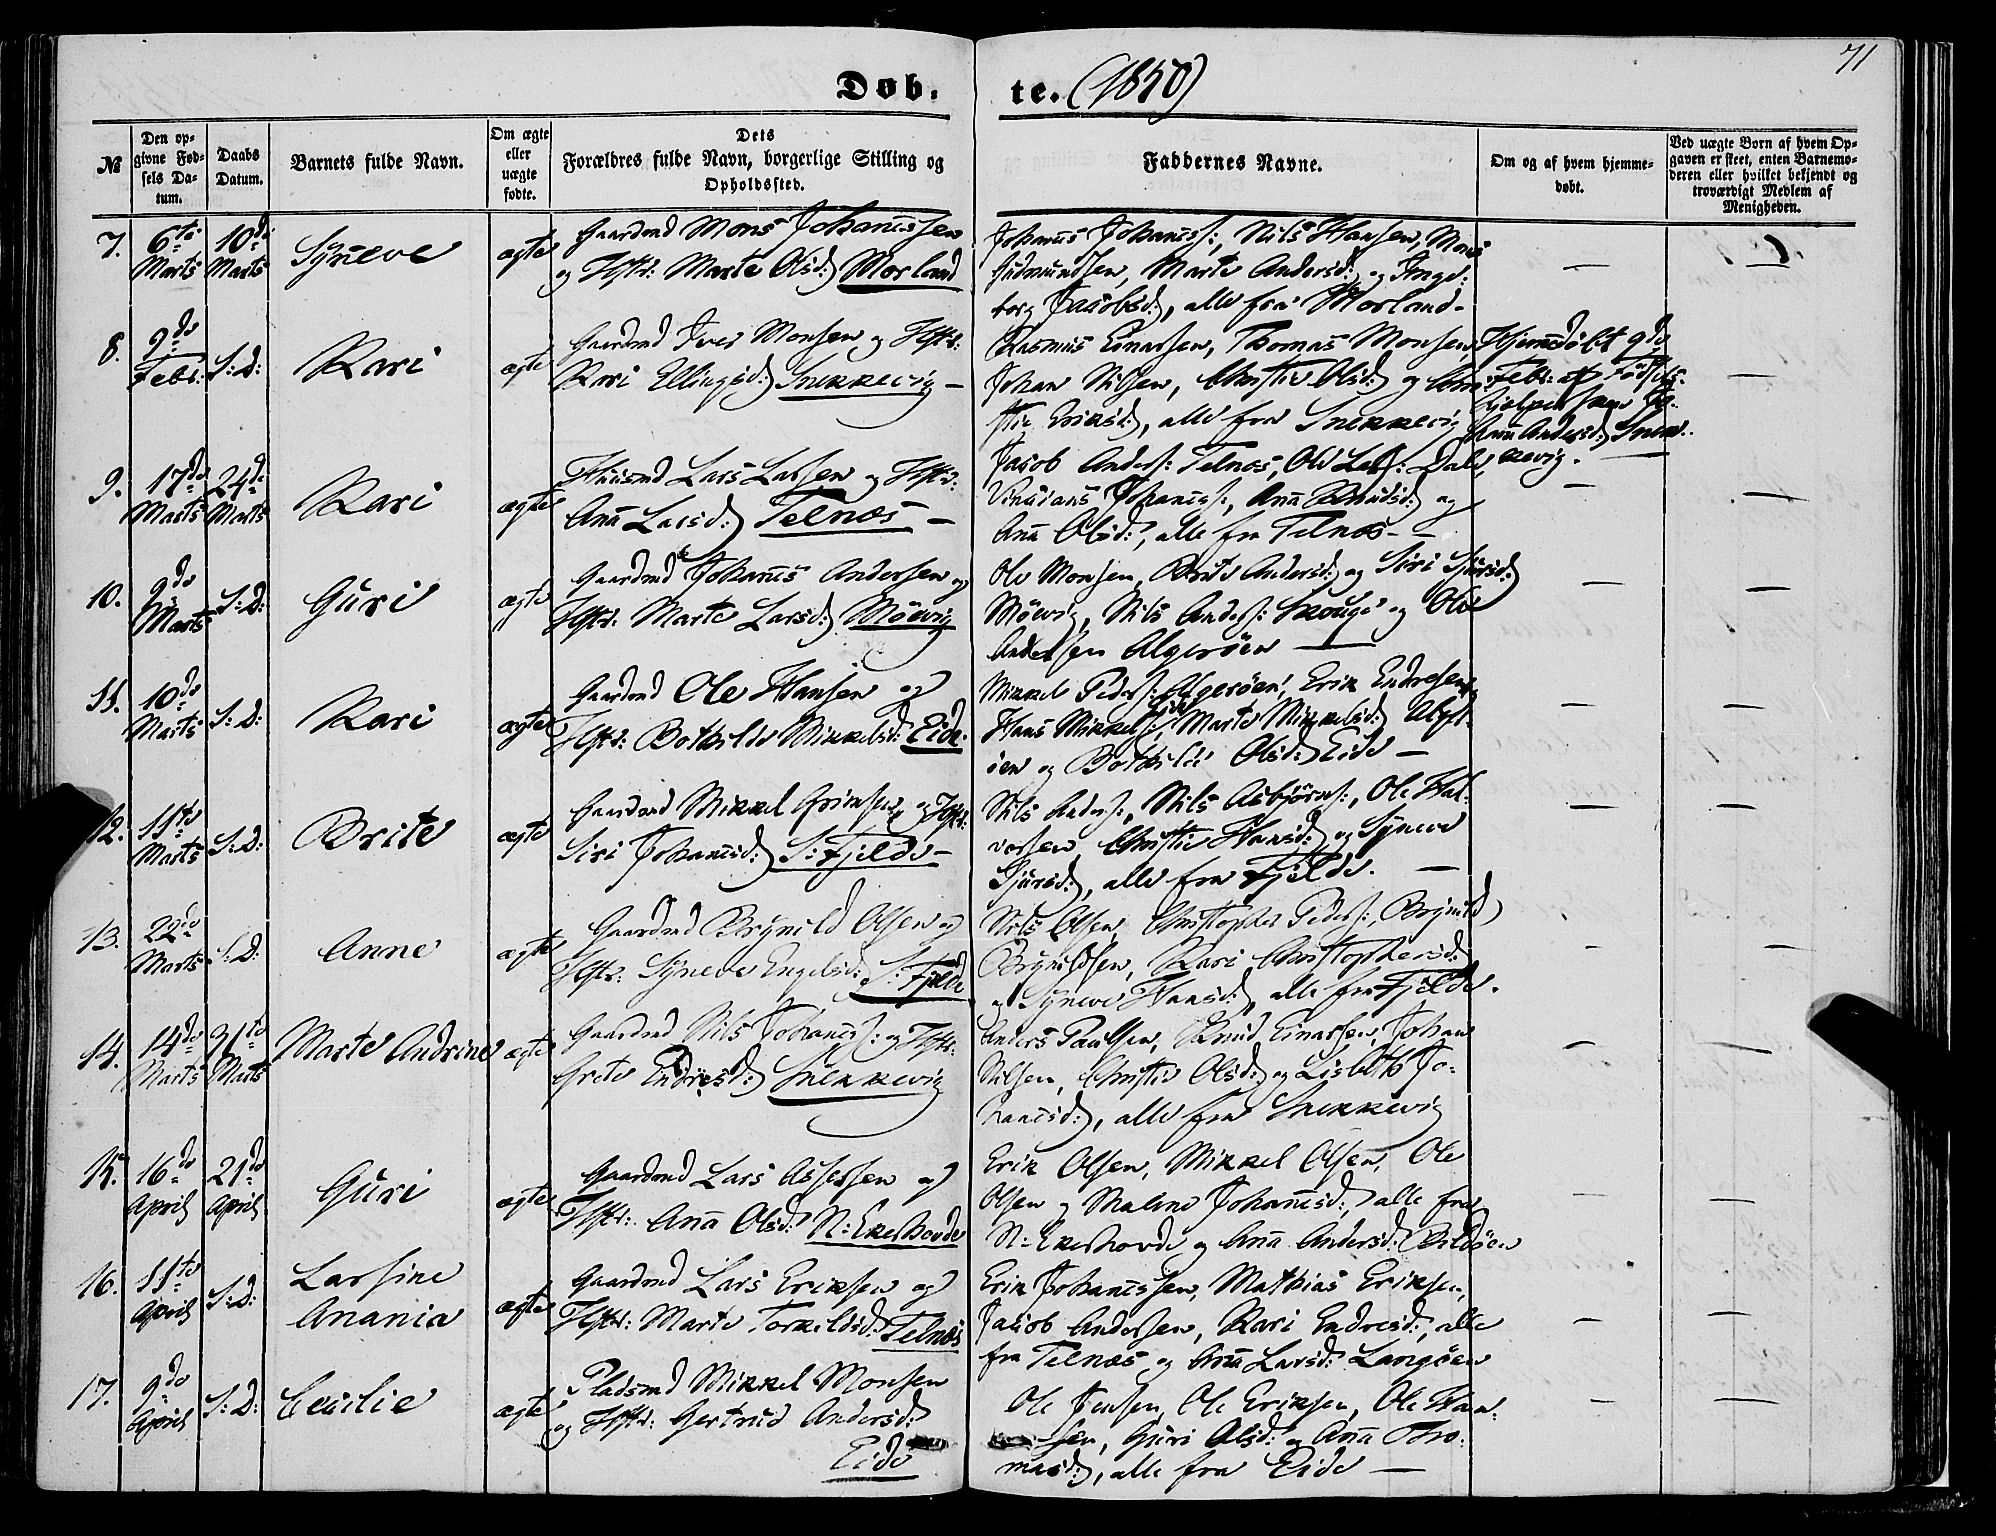 71
Døb. te. (1850)
№
Den op-
givne Fød-
sels Da-
tum.
Daabs
Datum.
Barnets fulde Navn.
Om ægte
eller
uægte
fødte.
Dets
Forældres fulde Navn, borgerlige Stilling og
Opholdssted.
Faddernes Navne.
Om og af hvem hjemme-
døbt.
Ved uægte Børn af hvem Op-
gaven er skeet, enten Barnemo-
deren eller hvilket bekjendt og
troværdigt Medlem af
Menigheden.
7. 6te Marts 10de Marts Syneve ægte
Gaardmd Mons Johannssen
og Hstr: Marte Olsd: Morland
Johans Johanss:, Nils Hansen, Mons
Gudmundsen, Marte Andersd: og Inge-
borg Jacobsd:, alle fra Morland -
8. 9de Febr: S: D: Kari ægte
Gaardmd Iver Monsen og Hstr:
Kari Ellingsd: Snekkevig -
Rasmus Einarsen, Thomas Monsen,
Johan Nilsen, Christie Olsd: og Chri-
stie Eriksd:, alle fra Snekkevig
Hjemdøbt 9de
Febr: af Fødsels-
hjelpersken
Andersd: Snek-
kevig.
9. 17de Marts 24de Marts Kari ægte
Huusmd Lars Larsen og Hstr:
Anna Larsd: Telnæs -
Jacob Anders: Telnæs, Ole Lars: Dale,
Johaness:, Anna Knudsd: og
Anna Olsd:, alle fra Telnæs -
10. 9de Marts S: D: Guri ægte
Gaardmd Johannes Andersen og
Hstr: Marte Larsd: Møvig
Ole Monsen, Brite Andersd: og Siri Sjursd:
Møvig, Nils Anders: Skouge og Ole
Andersen Algerøen
11. 10de Marts S: D: Kari ægte
Gaardmd Ole Hansen og
Hstr: Bothilde Mikkelsd: Eide.
Mikkel Peders: Algerøen, Erik Endresen,
Hans Mikkels: Eide, Marte Mikkelsd:
øen og Bothilde Olsd: Eide -
12. 11te Marts S: D: Brite ægte
Gaardmd Mikkel Grimsen og Hstr:
Siri Johansd: S: Fjelde -
Nils Anders:, Nils Asbjørns:, Ole Hal-
vorsen, Christie Hansd: og Syneve
Sjursd:, alle fra Fjelde. -
13. 22de Marts S: D: Anne ægte
Gaardmd Brynild Olsen og
Hstr: Syneve Engelsd: S: Fjelde
Nils Olsen, Christopher Peders:, Brynild
Brynildsen, Kari Christophersd:
og Syneve Hansd:, alle fra Fjelde.
14. 14de Marts 31te Marts Marte Andrine ægte
Gaardmd Nils Johanss: og Hstr:
Grete Endresd: Snekkevig
Anders Paulsen, Knud Einarsen, Johan
Nilsen, Christie Olsd: og Lisbeth Jo-
hannsd:, alle fra Snekkevig
15. 16de April 21de April Guri ægte
Gaardmd Lars Assersen og
Hstr: Anna Olsd: N: Ekerhovde
Erik Olsen, Mikkel Olsen, Ole
Olsen og Malene Johannsd:, alle fra
N: Ekerhovde og Anna Andersd: Bildøen
16. 11te April S: D: Larsine
Anania ægte
Gaardmd Lars Eriksen og
Hstr: Marte Torkildsd: Telnæs
Erik Johannssen, Mathias Eriksen,
Jacob Andersen, Kari Endresd:, alle
fra Telnæs og Anna Larsd: Langøen
17. 9de April S: D: Cecilie ægte
Pladsmd Mikkel Monsen
og Hstr: Gertrud Andersd:
Eide
Ole Jensen, Ole Eriksen, Ole Han-
sen, Guri Olsd: og Anna Tho-
masd:, alle fra Eide -